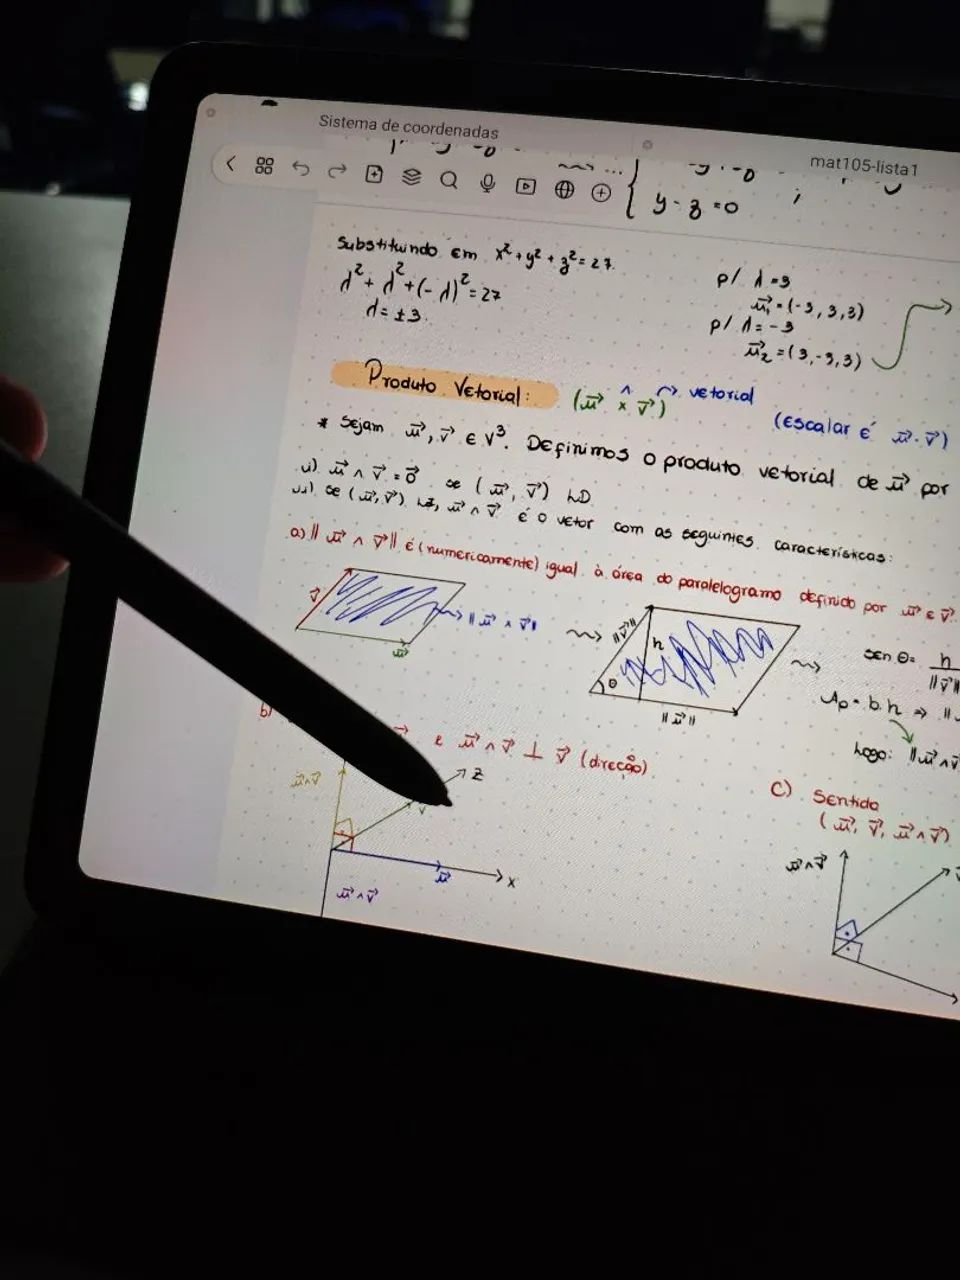 Sistema de coordenadas
mat105-lista1
y - z = 0
Substituindo em x² + y² + z² = 27
λ² + λ² + (-λ)² = 27
λ = ±3
p/ λ = 3
u⃗₁ = (-3, 3, 3)
p/ λ = -3
u⃗₂ = (3, -3, 3)
Produto Vetorial: (u⃗ × v⃗) ^ → vetorial
(Escalar é u⃗ · v⃗)
* Sejam u⃗, v⃗ ∈ V³. Definimos o produto vetorial de u⃗ por
i) u⃗ ∧ v⃗ = 0⃗ se (u⃗, v⃗) LD
ii) se (u⃗, v⃗) LI, u⃗ ∧ v⃗ é o vetor com as seguintes características:
a) || u⃗ ∧ v⃗ || é (numericamente) igual à área do paralelogramo definido por u⃗ e v⃗.
v⃗
u⃗
|| u⃗ × v⃗ ||
||v⃗||
h
θ
||u⃗||
sen θ = h
||v⃗||
Ap = b.h ⇒ ||
Logo: ||u⃗ ∧ v⃗
b)
e u⃗ ∧ v⃗ ⊥ v⃗ (direção)
u⃗ ∧ v⃗
z
v⃗
u⃗
x
u⃗ ∧ v⃗
C) Sentido
(u⃗, v⃗, u⃗ ∧ v⃗)
u⃗ ∧ v⃗